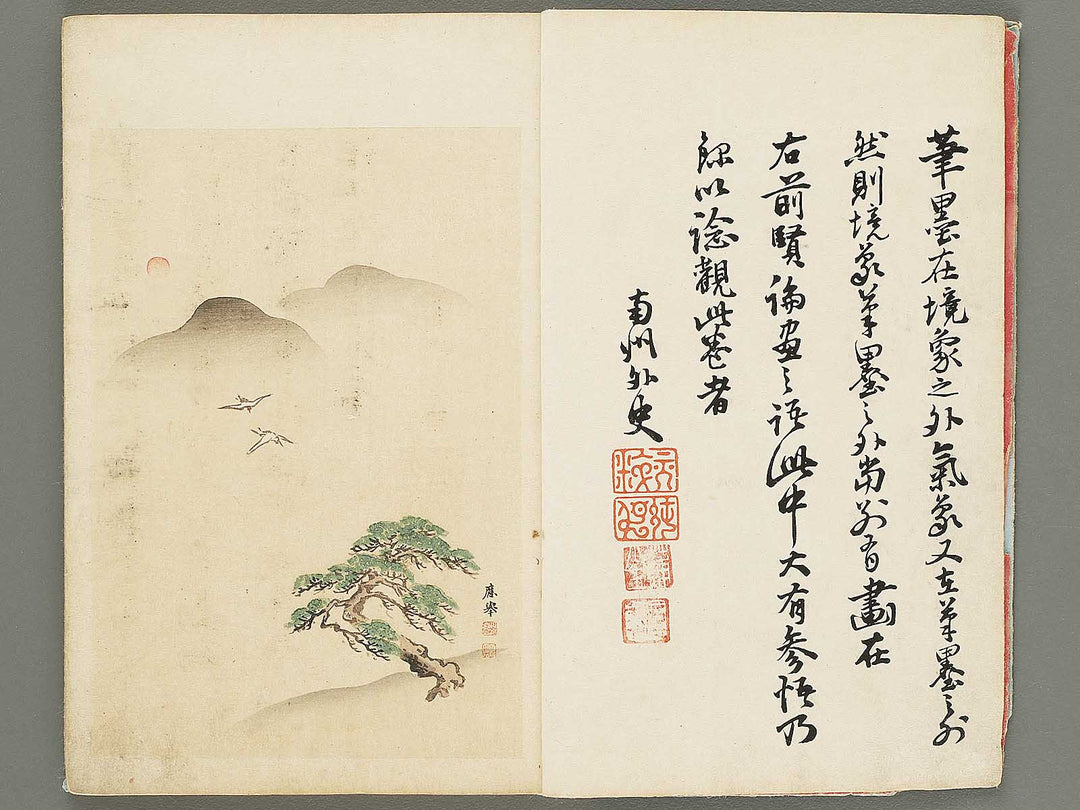 筆墨在境象之外氣象又在筆墨之外
然則境象筆墨之外當別有畫在
右前賢論畫之語此中大有參悟乃
錄以諗觀此卷者
南州外史
應舉